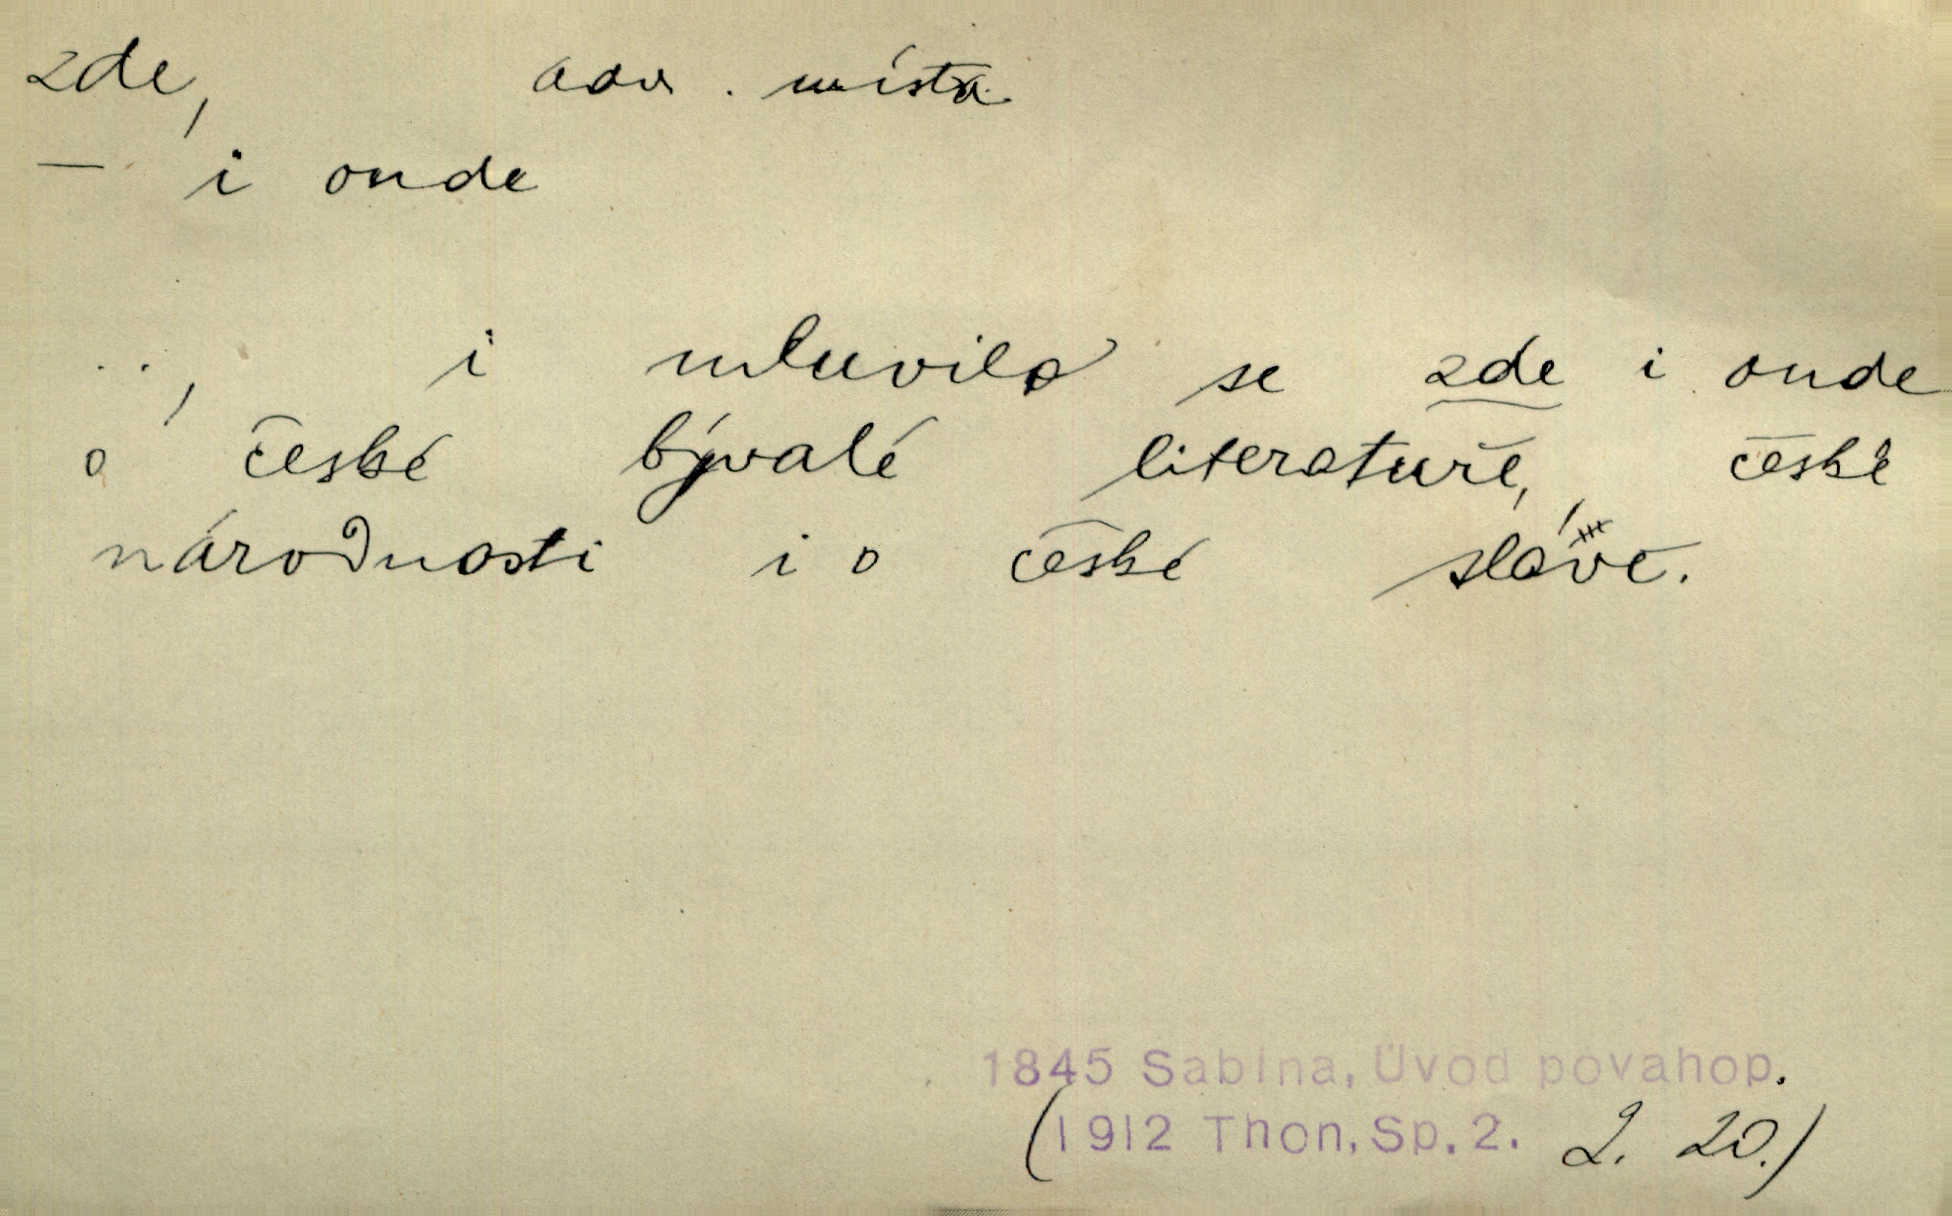 zde, adv. místa
— i onde
.., i mluvilo se zde i onde
o české bývalé literatuře, české
národnosti i o české slávě.
1845 Sabina, Úvod povahop.
(1912 Thon, Sp. 2. 2. 20.)